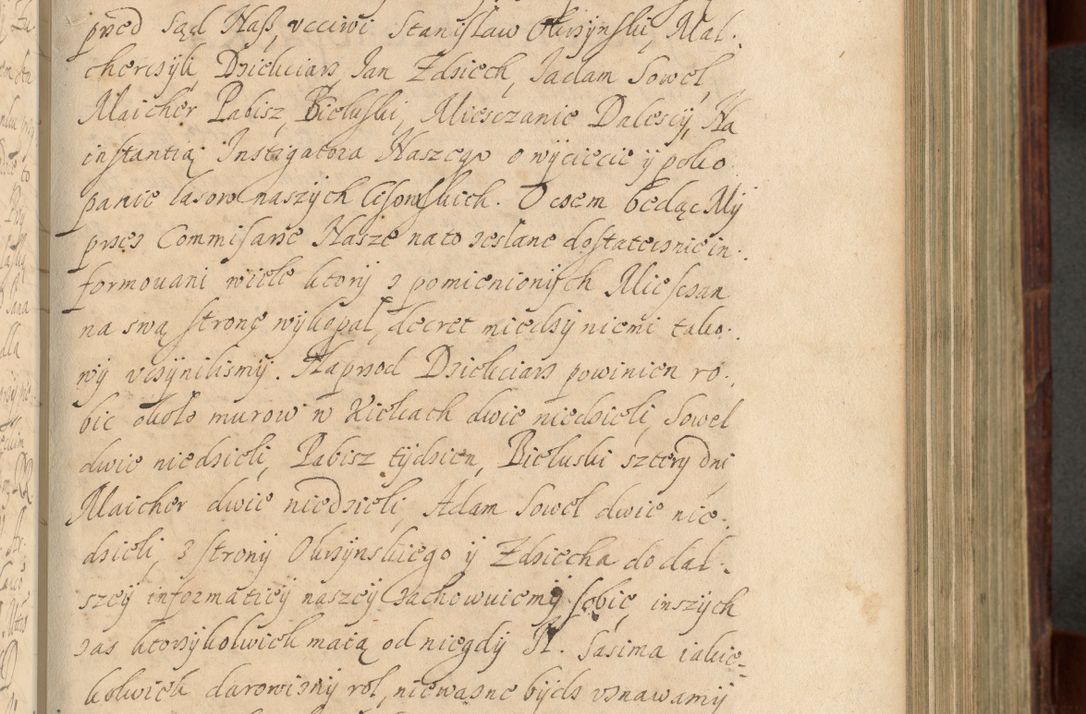 przed Sąd Nasz, vcciwi Stanisław Okrzynski, Mal-
chercзyk, Dziekciarz, Jan Zdziech, Jadam Soweł,
Maicher Pabisz, Bieluski, Miesczanie Dalescy, Na
instantią Instigatora Naszego o wycięcie y poko
panie lasow naszych Cisowskich. O czem będąc My
przez Commisarze Nasze na to zesłane dostatecznie in-
formowani wiele ktory z pomienionych Miesczan
na swą stronę wykopał, decret miedzy niemi tako-
wy vczynilismy. Naprzod Dziekciarz powinien ro-
bic około murow w Kielcach dwie niedzieli, Soweł
dwie niedzieli, Pabisz tydzien, Bieluski sztery dni,
Maicher dwie niedzieli, Adam Soweł dwie nie-
dzieli, z strony Okrzynskiego y Zdziecha do dal-
szey informatiey naszey zachowuiemy sobie, inszych
zas ktorzykolwiek maią od niegdy N. Sasima iakie-
kolwiek darowizny rol, nieważne bydz vznawamy